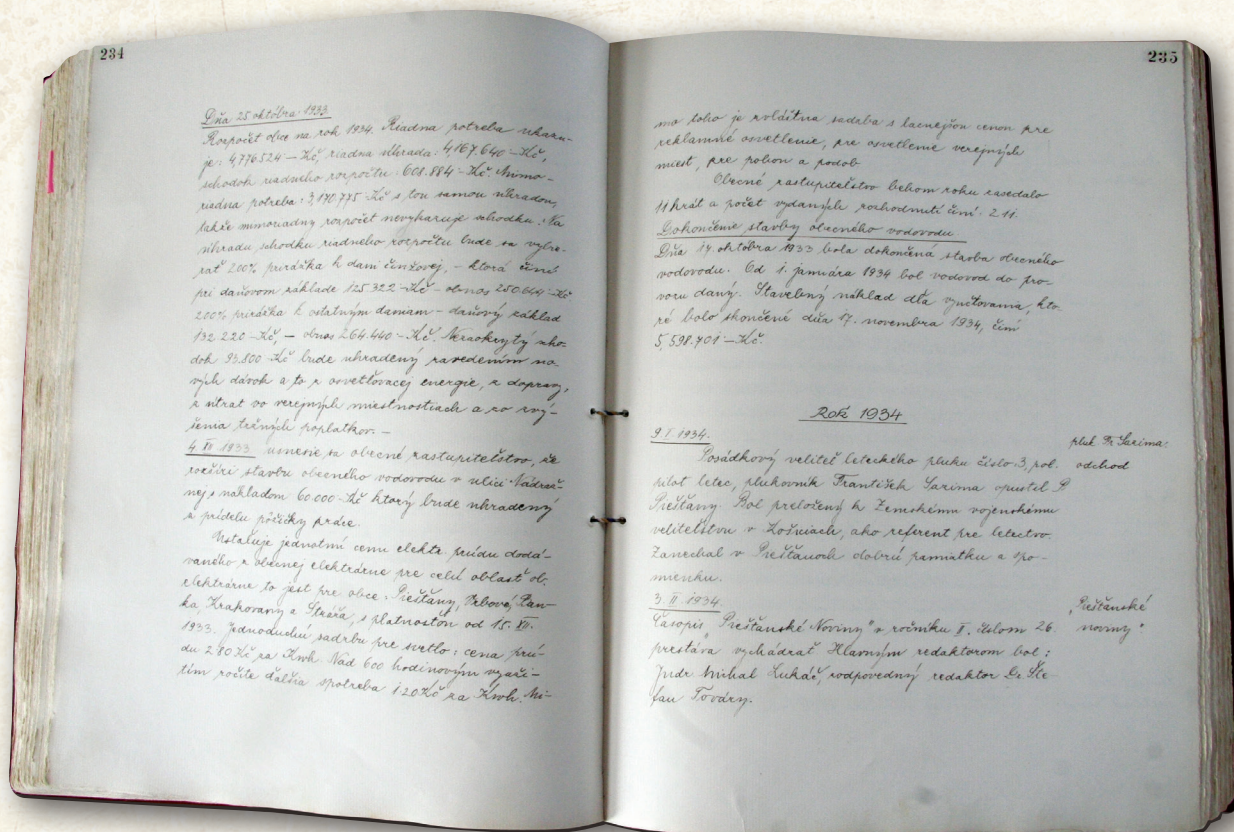 234
Dňa 25 októbra 1933.
Rozpočet obce na rok 1934. Riadna potreba ukazu-
je: 4,776.524 – Kč, riadna úhrada: 4,167.640 – Kč,
schodok riadneho rozpočtu: 608.884 – Kč Mimo-
riadna potreba: 3,170.775 – Kč s tou samou úhradou,
takže mimoriadny rozpočet nevykazuje schodku. Na
úhradu schodku riadneho rozpočtu bude sa vybe-
rať 200% prirážka k dani činžovej, – ktorá činí
pri daňovom základe 125.322 – Kč – obnos 250.644 – Kč
200% prirážka k ostatným daniam – daňový základ
132.220 – Kč, – obnos 264.440 – Kč. Nezaokrytý scho-
dok 93.800 – Kč bude uhradený zavedením no-
vých dávok a to z osvetľovacej energie, z dopravy,
z útrat vo verejných miestnostiach a zo zvý-
šenia tržných poplatkov. –
4. XII 1933 usnesie sa obecné zastupiteľstvo, že
rozšíri stavbu obecného vodovodu v ulici Nádraž-
nej s nákladom 60.000 – Kč ktorý bude uhradený
z prídelu pôžičky práce.
Ustaľuje jednotnú cenu elektr. prúdu dodá-
vaného z obecnej elektrárne pre celú oblasť ob.
elektrárne to jest pre obce: Piešťany, Vrbové, Ban-
ka, Krakovany a Stráža, s platnosťou od 15. XII.
1933. Jednoduchú sadzbu pre svetlo: cena prú-
du 2.80 Kč za Kwh. Nad 600 hodinovým využi-
tím ročite ďalšia spotreba 1.20 Kč za Kwh. Mi-
235
mo toho je zvláštna sadzba s lacnejšou cenou pre
reklamné osvetlenie, pre osvetlenie verejných
miest, pre pohon a podob.
Obecné zastupiteľstvo behom roku zasedalo
11 krát a počet vydaných rozhodnutí činí: 211.
Dokončenie stavby obecného vodovodu.
Dňa 17. októbra 1933 bola dokončená stavba obecného
vodovodu. Od 1. januára 1934 bol vodovod do pre-
vozu daný. Stavebný náklad dľa vyúčtovania, kto-
ré bolo skončené dňa 17. novembra 1934, činí
5,598.701 – Kč.
Rok 1934
9. I. 1934.
pluk. Fr. Sarima
Posádkový veliteľ leteckého pluku číslo 3, pol.
odchod
pilot letec, plukovník František Sarima opustil P
Piešťany. Bol preložený k Zemskému vojenskému
veliteľstvu v Košiciach, ako referent pre letectvo.
Zanechal v Piešťanoch dobrú pamiatku a spo-
mienku.
3. II. 1934.
„Piešťanské
Časopis „Piešťanské Noviny" v ročníku II. číslom 26
noviny"
prestáva vychádzať Hlavným redaktorom bol:
Judr Michal Lukáč, zodpovedný redaktor Dr. Šte-
fan Tovdry.